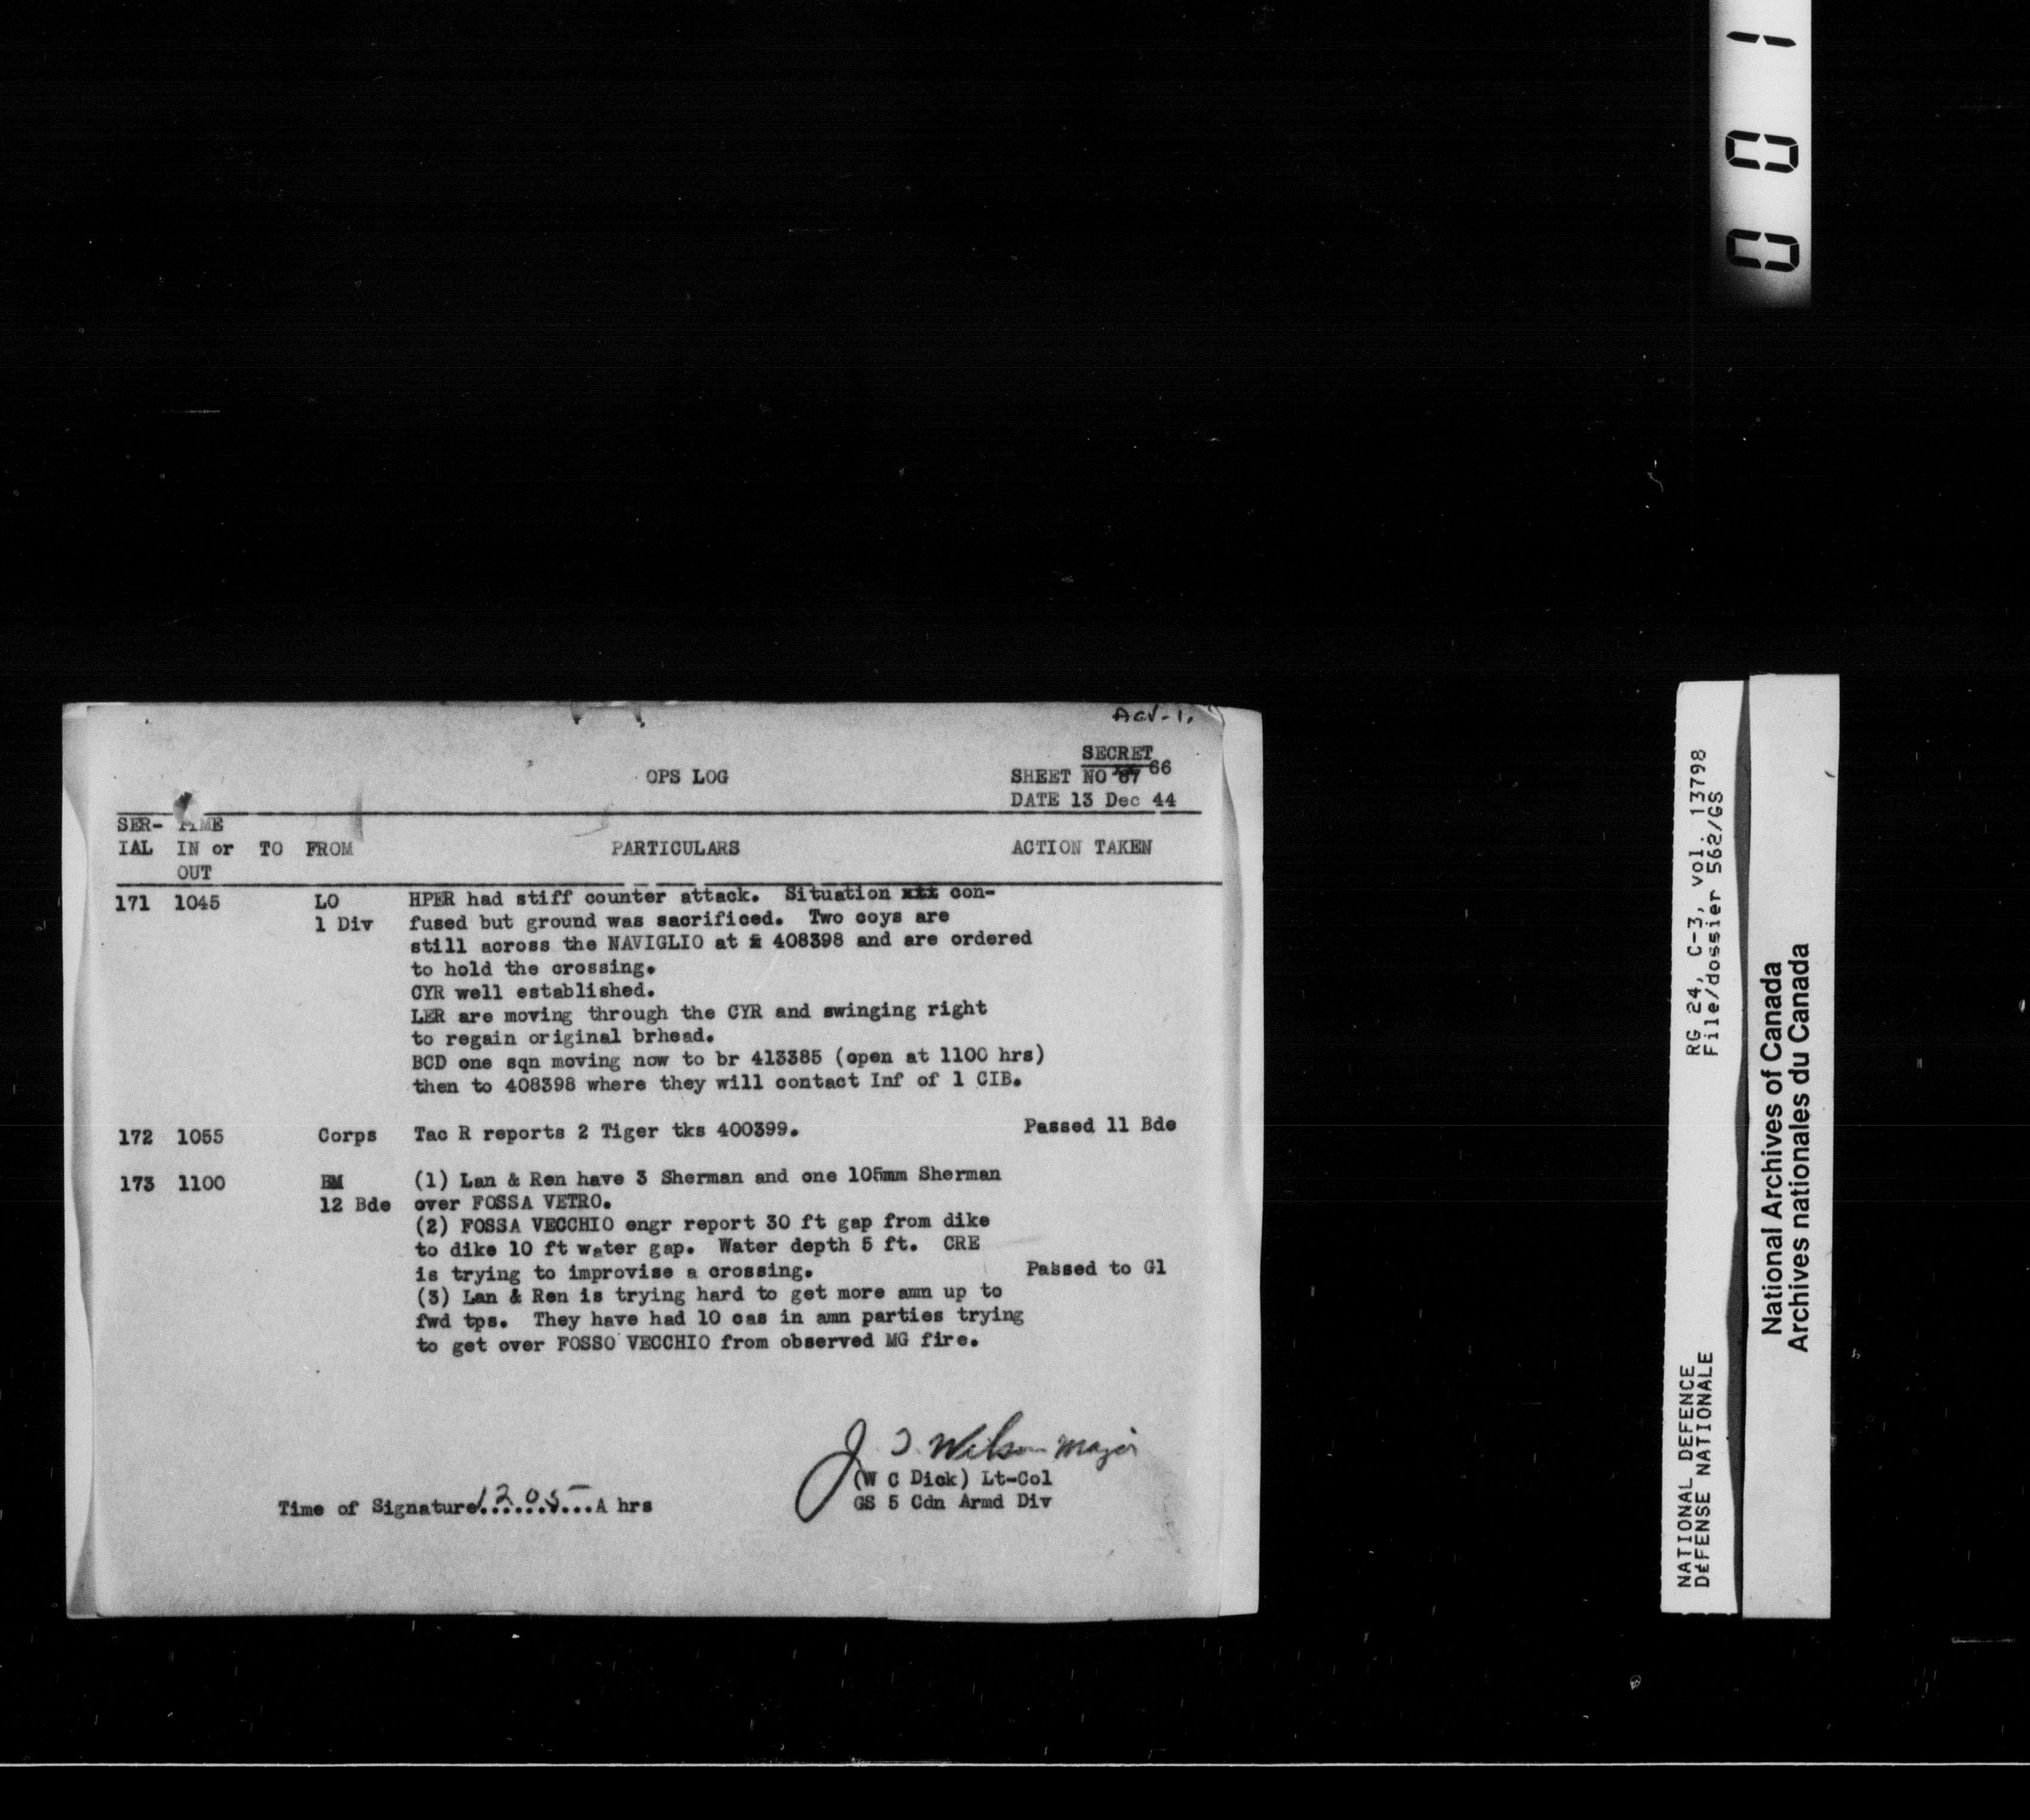 001
Acv-1.
SECRET
OPS LOG SHEET NO 67 66
DATE 13 Dec 44
SER- TIME
IAL IN or TO FROM PARTICULARS ACTION TAKEN
OUT
171 1045 LO HPER had stiff counter attack. Situation xtt con-
1 Div fused but ground was sacrificed. Two coys are
still across the NAVIGLIO at 408398 and are ordered
to hold the crossing.
CYR well established.
LER are moving through the CYR and swinging right
to regain original brhead.
BCD one sqn moving now to br 413385 (open at 1100 hrs)
then to 408398 where they will contact Inf of 1 CIB.
172 1055 Corps Tac R reports 2 Tiger tks 400399. Passed 11 Bde
173 1100 BM (1) Lan & Ren have 3 Sherman and one 105mm Sherman
12 Bde over FOSSA VETRO.
(2) FOSSA VECCHIO engr report 30 ft gap from dike
to dike 10 ft water gap. Water depth 5 ft. CRE
is trying to improvise a crossing. Passed to G1
(3) Lan & Ren is trying hard to get more amn up to
fwd tps. They have had 10 cas in amn parties trying
to get over FOSSO VECCHIO from observed MG fire.
J. Wilson Major
(W C Dick) Lt-Col
Time of Signature 1205 A hrs GS 5 Cdn Armd Div
RG 24, C-3, vol. 13798
File/dossier 562/GS
NATIONAL DEFENCE
DÉFENSE NATIONALE
National Archives of Canada
Archives nationales du Canada